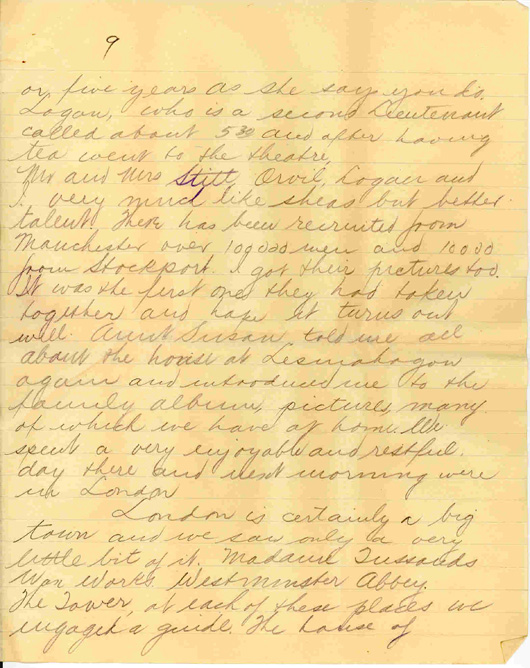 9
or five years as she says you do.
Logan, who is a second Lieutenant
called about 5 30 and after having
tea went to the theatre,
Mr and Mrs Stitt, Orvil, Logan and
I. very much like sheas but better
talent. There has been recruited from
Manchester over 100000 men and 10000
from Stockport. I got their pictures too.
It was the first one they had taken
together and hope it turns out
well. Aunt Susan told me all
about the house at Lesmahagon
again and introduced me to the
family album, pictures, many
of which we have at home We
spent a very enjoyable and restful.
day there and next morning were
in London
London is certainly a big
town and we saw only a very
little bit of it. Madame Tussauds
Wax Works. Westminster Abbey.
The Tower, at each of these places we
engaged a guide. The house of